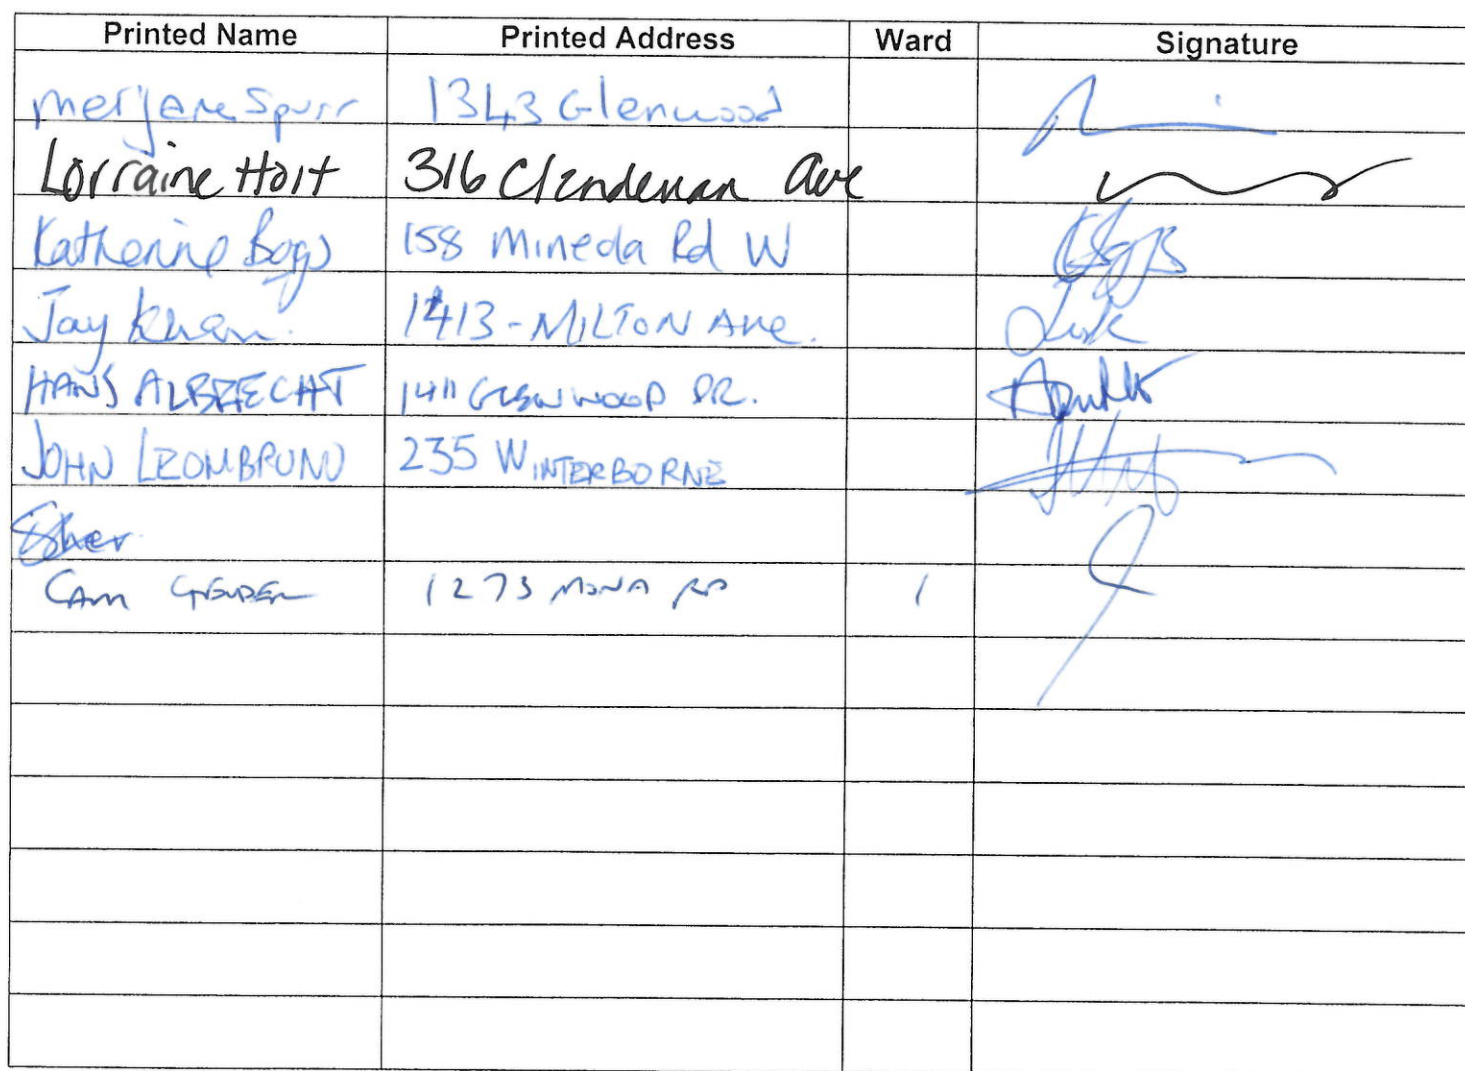 Printed Name Printed Address Ward Signature
Merjane Spurr 1343 Glenwood
Lorraine Hort 316 Clendenan Ave
Katherine Bogs 158 Mineda Rd W
Jay Khan. 1413 - MILTON AVe.
HANS ALBRECHT 1411 GLENWOOD DR.
JOHN LEOMBRUNO 235 WINTERBORNE
CAM 1273 MONA RD 1